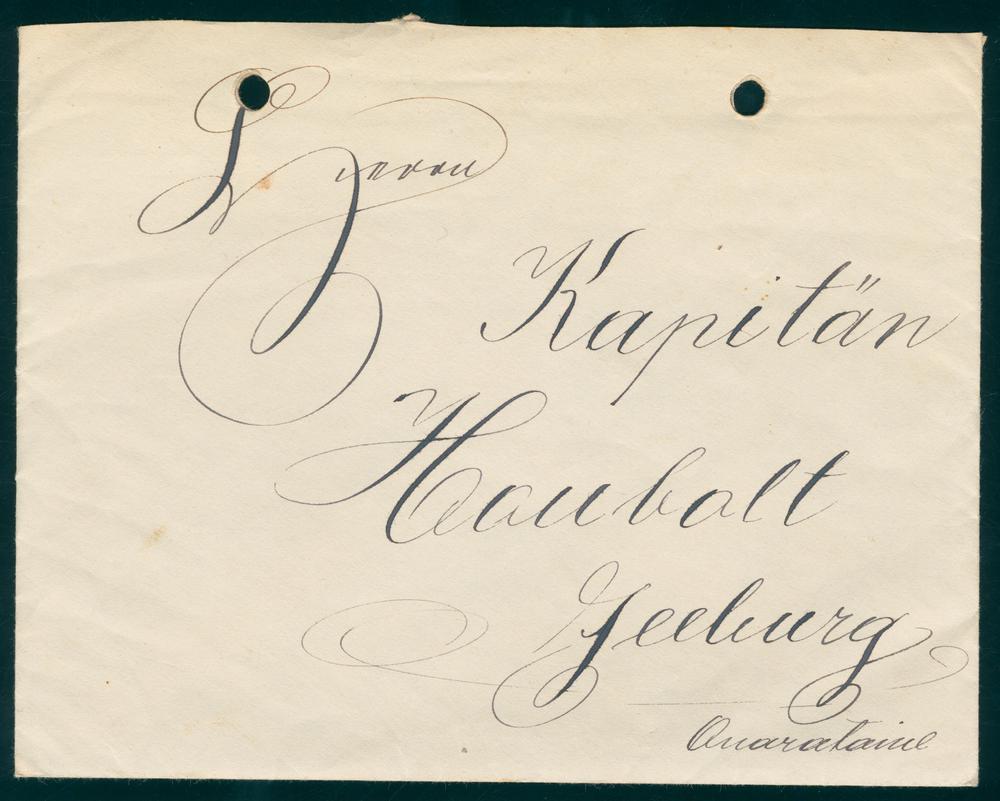 Herrn
Kapitän
Houbolt
Zeeburg
Quarataine